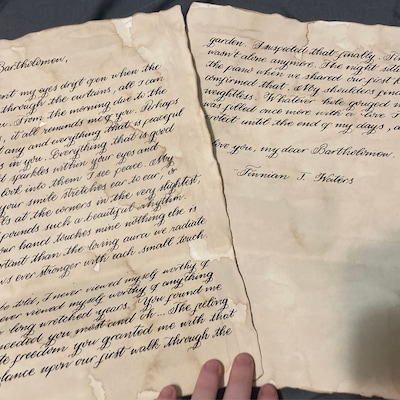 Bartholomew,
my eyes do open when the
through the curtains, all I can
From the morning due to the
it all reminds me of you. Perhaps
any and everything that is peaceful
in you. Everything that is good
sparkles within your eyes and
look into them I see peace. My
your smile stretches ear to ear, or
at the corners in the very slightest,
pounds such a beautiful rhythm.
our hand touches mine nothing else is
than the loving aura we radiate
ever stronger with each small touch.
told, I never viewed myself worthy of
ever viewed myself worthy of anything
long wretched years. You found me
needed you most and oh... The
freedom you granted me with that
upon our first walk through the
garden. I suspected that finally,
wasn't alone anymore. The night
the piano when we shared our first
confirmed that. My shoulders
weightless. Whatever hole gouged
was filled once more with a love I
until the end of my days,
love you, my dear Bartholomew.